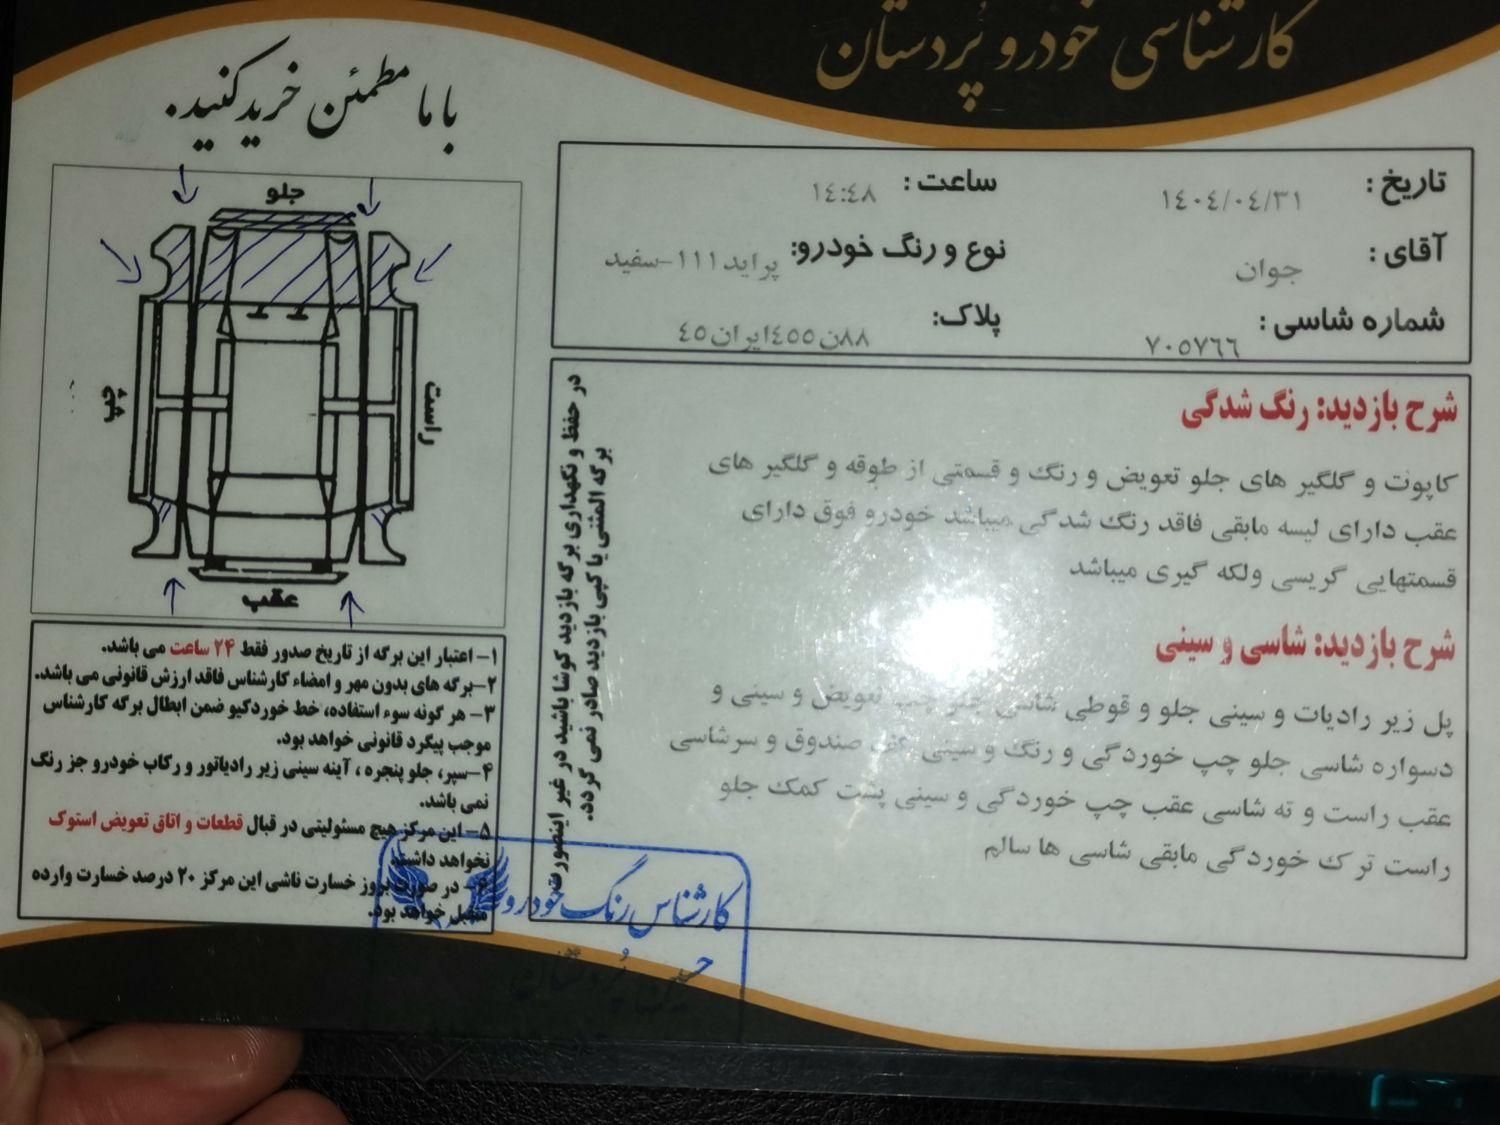 کارشناسی خودرو پُردستان
با ما مطمئن خرید کنید.
تاریخ: ۱۴۰۴/۰۴/۳۱
ساعت: ۱۴:۴۸
آقای: جوان
نوع و رنگ خودرو: پراید۱۱۱-سفید
شماره شاسی: ۷۰۵۷۶۶
پلاک: ۸۸ن۴۵۵ایران۴۵
جلو
چپ
راست
عقب
شرح بازدید: رنگ شدگی
کاپوت و گلگیر های جلو تعویض و رنگ و قسمتی از طوقه و گلگیر های
عقب دارای لیسه مابقی فاقد رنگ شدگی میباشد خودرو فوق دارای
قسمتهایی گریسی ولکه گیری میباشد
شرح بازدید: شاسی و سینی
پل زیر رادیات و سینی جلو و قوطی شاسی جلو چپ تعویض و سینی و
دسواره شاسی جلو چپ خوردگی و رنگ و سینی کف صندوق و سرشاسی
عقب راست و ته شاسی عقب چپ خوردگی و سینی پشت کمک جلو
راست ترک خوردگی مابقی شاسی ها سالم
در حفظ و نگهداری برگه بازدید کوشا باشید در غیر اینصورت
برگه المثنی یا کپی بازدید صادر نمی گردد.
۱- اعتبار این برگه از تاریخ صدور فقط ۲۴ ساعت می باشد.
۲-برگه های بدون مهر و امضاء کارشناس فاقد ارزش قانونی می باشد.
۳- هر گونه سوء استفاده، خط خوردگیو ضمن ابطال برگه کارشناس
موجب پیگرد قانونی خواهد بود.
۴-سپر، جلو پنجره، آینه سینی زیر رادیاتور و رکاب خودرو جز رنگ
نمی باشد.
۵- این مرکز هیچ مسئولیتی در قبال قطعات و اتاق تعویض استوک
نخواهد داشت.
۶- در صورت بروز خسارت ناشی این مرکز ۲۰ درصد خسارت وارده
متقبل خواهد بود.
کارشناس رنگ خودرو
پُردستان